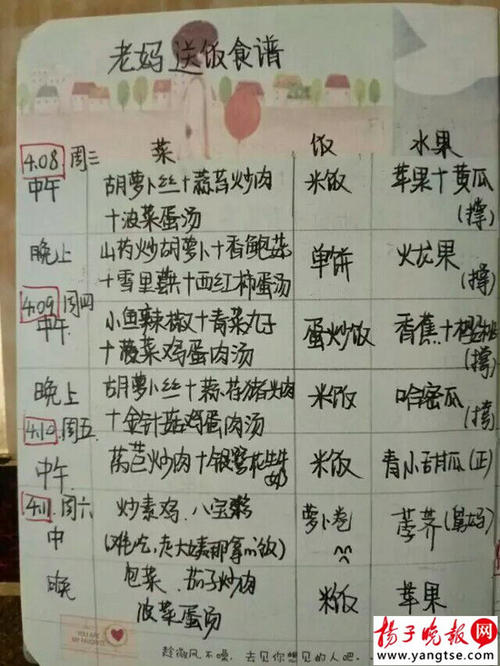 老妈送饭食谱
菜 饭 水果
4.08 周三
中午 胡萝卜丝+蒜苔炒肉 米饭 苹果+黄瓜
+菠菜蛋汤 (撑)
晚上 山药炒胡萝卜+香鲍菇 单饼 火龙果
+雪里蕻+西红柿蛋汤 (撑)
4.09 周四
中午 小鱼辣椒+青菜丸子 蛋炒饭 香蕉+樱桃
+菠菜鸡蛋肉汤 (撑)
晚上 胡萝卜丝+蒜苔猪肉 米饭 哈密瓜
+金针菇鸡蛋肉汤 (撑)
4.10 周五
中午 莴苣炒肉+银鹭花生牛奶 米饭 青小甜瓜(正)
4.11 周六
中 炒素鸡、八宝粥 萝卜卷 荸荠(舅妈)
(难吃,老大姨那拿的饭)
晚 包菜、茄子炒肉 米饭 苹果
菠菜蛋汤
YOU ARE
MY FAVORITE
趁微风不噪,去见你想见的人吧。
扬子晚报网
www.yangtse.com